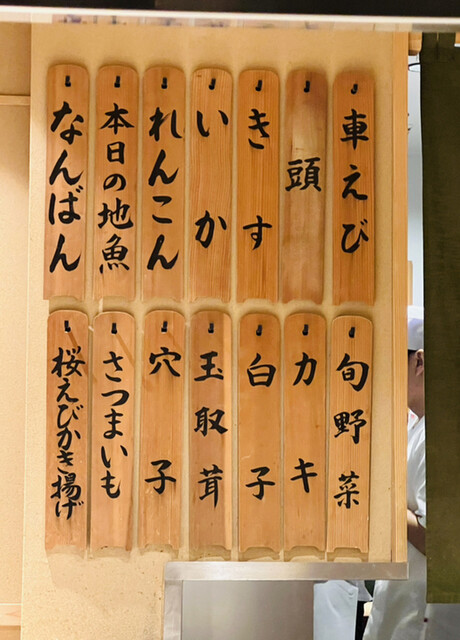 車えび
頭
きす
いか
れんこん
本日の地魚
なんばん
旬野菜
カキ
白子
玉取茸
穴子
さつまいも
桜えびかき揚げ